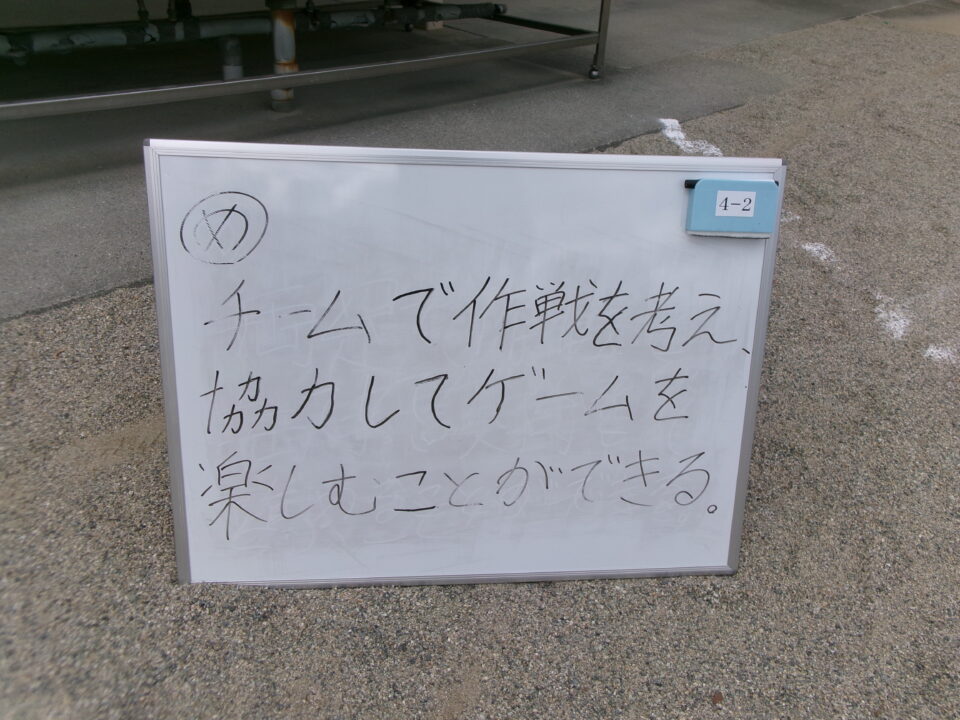 め
4-2
チームで作戦を考え、
協力してゲームを
楽しむことができる。